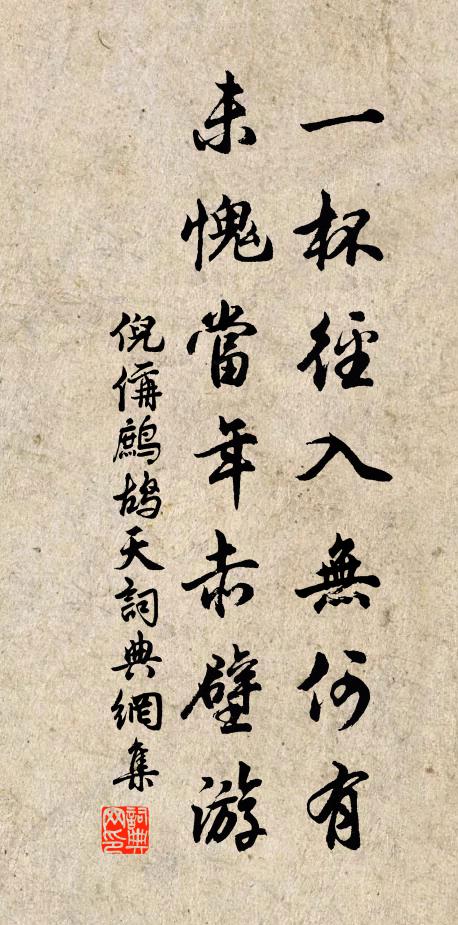 一杯徑入無何有
未愧當年赤壁游
倪偁鷓鴣天詞典網集
詞典网印